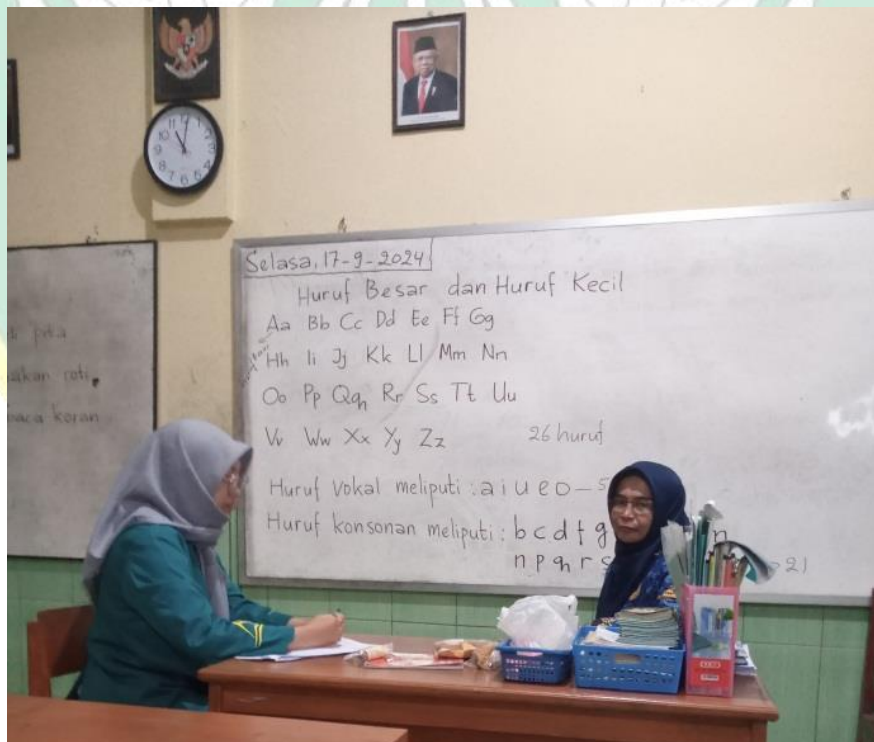 Selasa, 17-9-2024
Huruf Besar dan Huruf Kecil
Aa Bb Cc Dd Ee Ff Gg
Hh Ii Jj Kk Ll Mm Nn
Oo Pp Qq Rr Ss Tt Uu
Vv Ww Xx Yy Zz 26 huruf
Huruf Vokal meliputi : a i u e o - 5
Huruf konsonan meliputi : b c d f g
n p q r s 21
pita
makan roti
baca koran